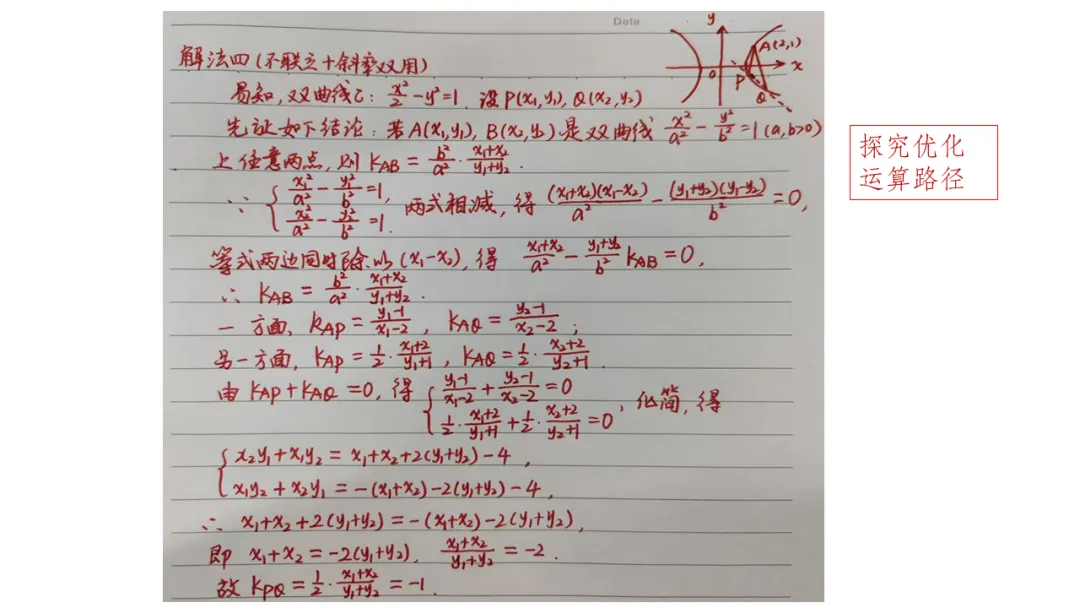 Date
解法四(不联立+斜率双用)
易知,双曲线C: x²/2 - y² = 1. 设P(x₁,y₁), Q(x₂,y₂)
先证如下结论: 若A(x₁,y₁), B(x₂,y₂)是双曲线 x²/a² - y²/b² = 1 (a,b>0)
上任意两点, 则 k_AB = b²/a² · (x₁+x₂)/(y₁+y₂).
∵ { x₁²/a² - y₁²/b² = 1, x₂²/a² - y₂²/b² = 1. 两式相减, 得 (x₁+x₂)(x₁-x₂)/a² - (y₁+y₂)(y₁-y₂)/b² = 0,
等式两边同时除以(x₁-x₂), 得 (x₁+x₂)/a² - (y₁+y₂)/b² k_AB = 0,
∴ k_AB = b²/a² · (x₁+x₂)/(y₁+y₂).
一方面, k_AP = (y₁-1)/(x₁-2), k_AQ = (y₂-1)/(x₂-2);
另一方面, k_AP = 1/2 · (x₁+2)/(y₁+1), k_AQ = 1/2 · (x₂+2)/(y₂+1).
由 k_AP + k_AQ = 0, 得 { (y₁-1)/(x₁-2) + (y₂-1)/(x₂-2) = 0, 1/2 · (x₁+2)/(y₁+1) + 1/2 · (x₂+2)/(y₂+1) = 0, 化简, 得
{ x₂y₁+x₁y₂ = x₁+x₂+2(y₁+y₂)-4,
x₁y₂+x₂y₁ = -(x₁+x₂)-2(y₁+y₂)-4,
∴ x₁+x₂+2(y₁+y₂) = -(x₁+x₂)-2(y₁+y₂),
即 x₁+x₂ = -2(y₁+y₂), (x₁+x₂)/(y₁+y₂) = -2.
故 k_PQ = 1/2 · (x₁+x₂)/(y₁+y₂) = -1.
y
A(2,1)
O
P
x
Q
探究优化
运算路径